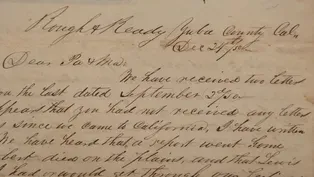 Rough & Ready Yuba County Cal.
Dec
Dear Pa & Ma.
We have received two letter
on the last dated September
appears that you had not received any letter
s since we came to California, I have written
We have heard that a report went home
bert died on the plains, and that Lewis
had would get through